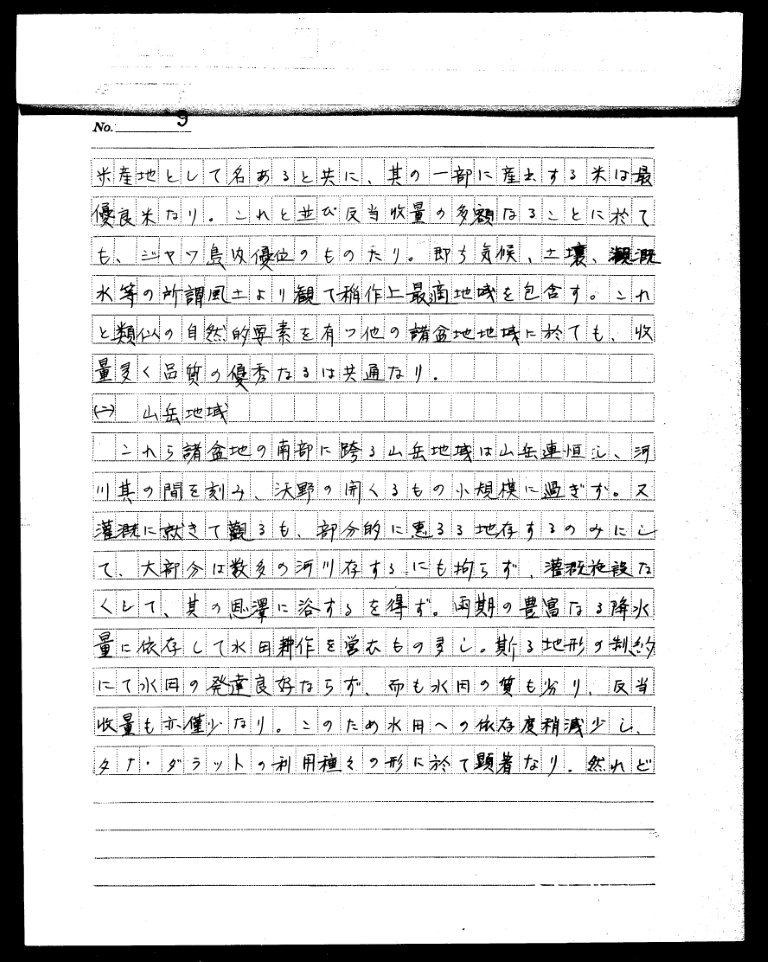 No. 9
米産地として名あると共に、其の一部に産出する米は最
優良米なり。これと並び反当收量の多額なることに於て
も、ジヤワ島内優位のものたり。即ち気候、土壌、灌漑
水等の所謂風土より観て稲作上最適地域を包含す。これ
と類似の自然的要素を有つ他の諸盆地地域に於ても、收
量多く品質の優秀なるは共通なり。
(二) 山岳地域
これら諸盆地の南部に跨る山岳地域は山岳連恒し、河
川其の間を刻み、沃野の開くるもの小規模に過ぎず。又
灌漑に就きて觀るも、部分的に恵るる地存するのみにし
て、大部分は数多の河川存するにも拘らず、灌漑施設な
くして、其の恩澤に浴するを得ず。雨期の豊富なる降水
量に依存して水田耕作を営むもの多し。斯る地形の制約
にて水田の発達良好ならず、而も水田の質も劣り、反当
收量も亦僅少なり。このため水田への依存度稍減少し、
タナ・ダラットの利用種々の形に於て顕著なり。然れど